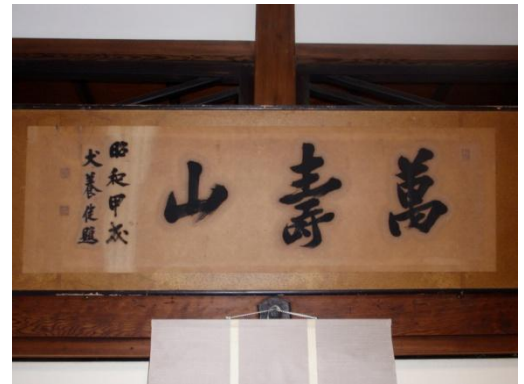 萬壽山
昭和甲戌
犬養健題